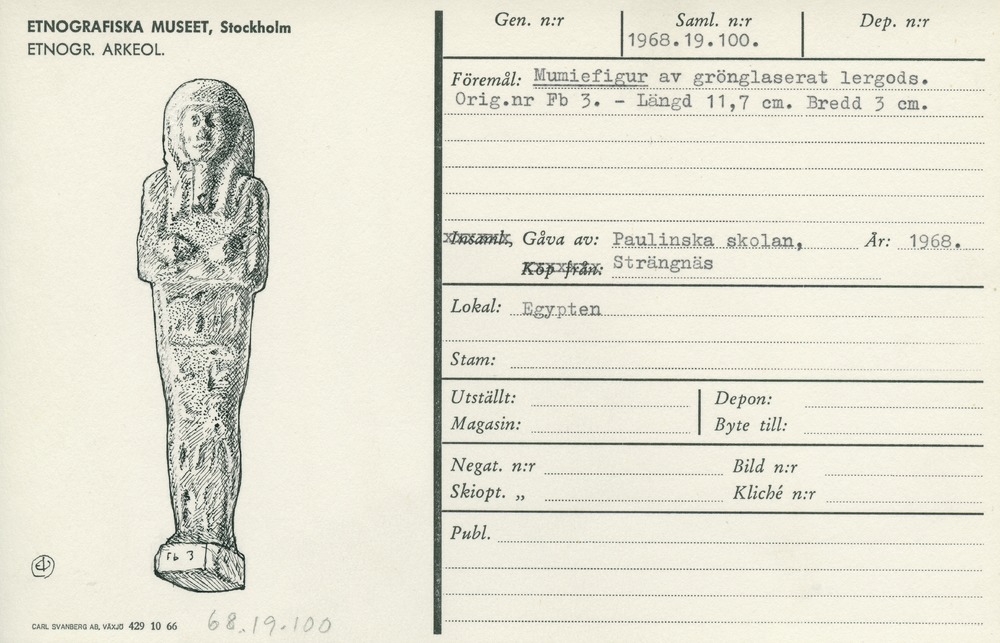 ETNOGRAFISKA MUSEET, Stockholm
ETNOGR. ARKEOL.
Fb 3
CARL SVANBERG AB, VÄXJÖ 429 10 66
68.19.100
Gen. n:r
Saml. n:r
1968.19.100.
Dep. n:r
Föremål: Mumiefigur av grönglaserat lergods.
Orig.nr Fb 3. - Längd 11,7 cm. Bredd 3 cm.
Insaml., Gåva av: Paulinska skolan, År: 1968.
Köp från: Strängnäs
Lokal: Egypten
Stam:
Utställt: Depon:
Magasin: Byte till:
Negat. n:r Bild n:r
Skiopt. „ Kliché n:r
Publ.